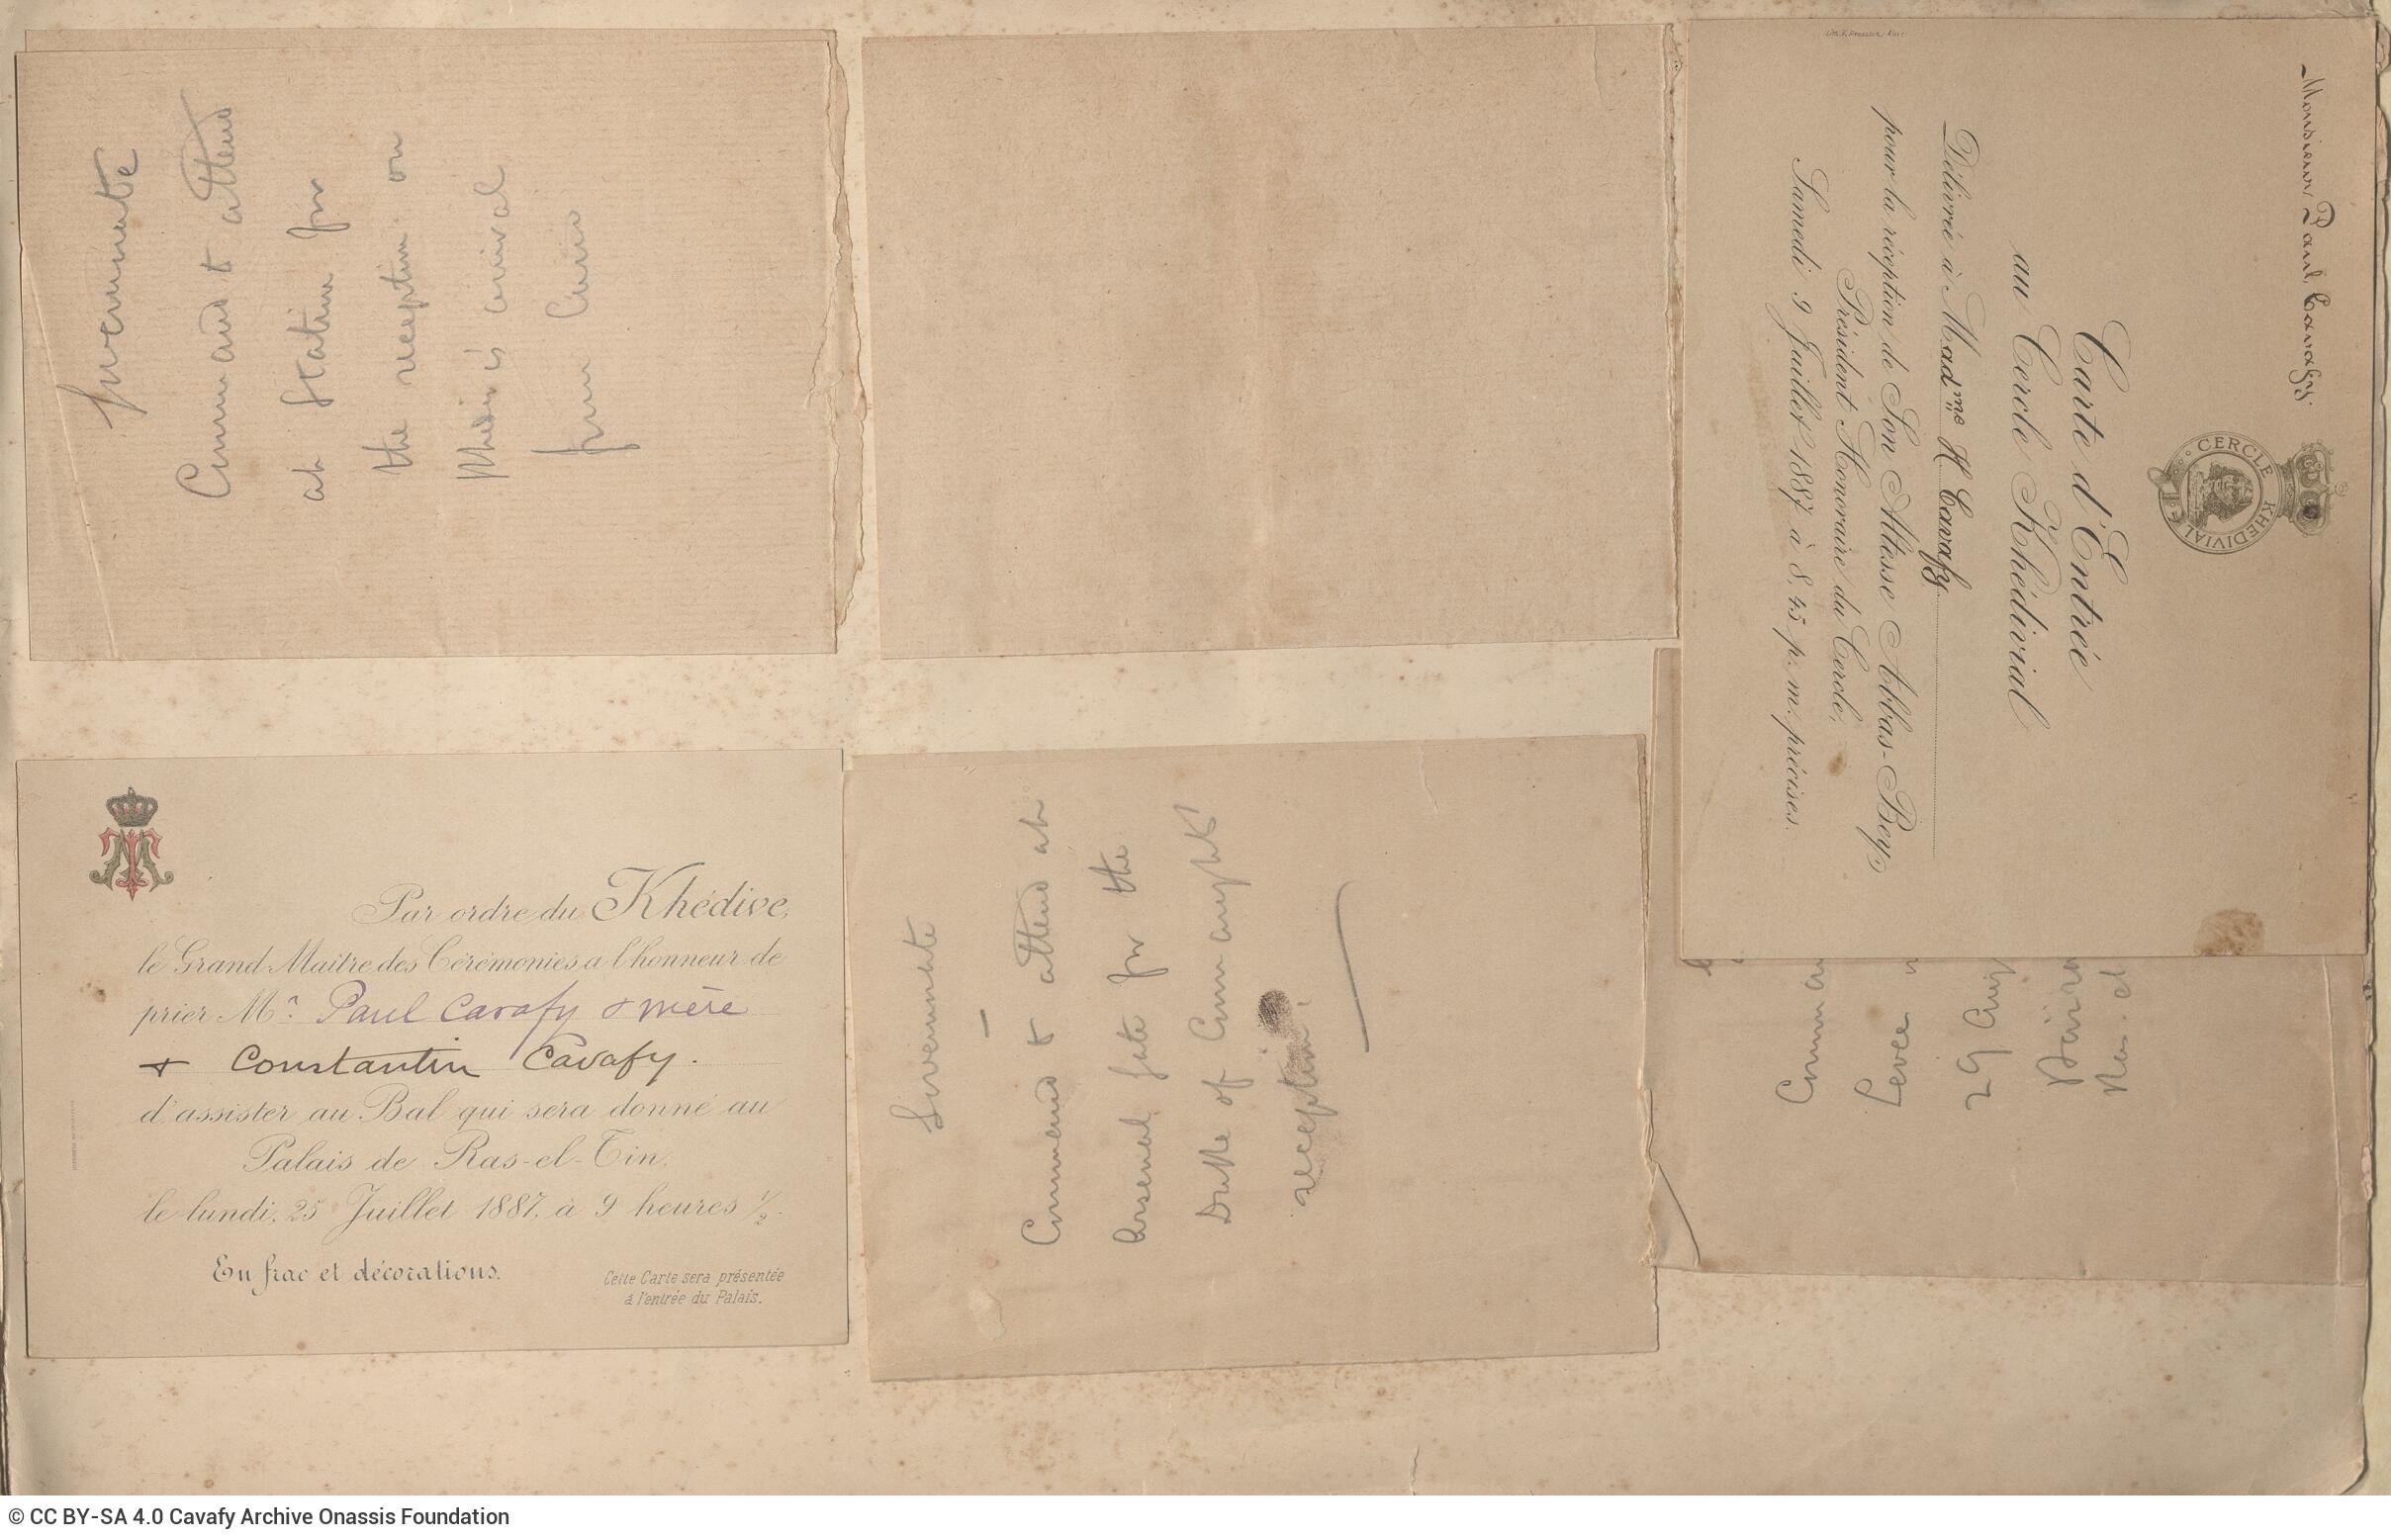 Governorate
Command to attend
at Station for
the reception on
Khedive's arrival
from Cairo
Monsieur Paul Cavafy.
CERCLE KHEDIVIAL
Carte d'Entrée
au Cercle Khédivial
Délivrée à Madme H Cavafy
pour la réception de Son Altesse Abbas-Bey,
Président Honoraire du Cercle,
Samedi 9 Juillet 1887 à 8,45 p. m. précises.
Par ordre du Khédive,
le Grand Maître des Cérémonies a l'honneur de
prier Mr. Paul Cavafy & mère
+ Constantin Cavafy.
d'assister au Bal qui sera donné au
Palais de Ras-el-Tin,
le lundi, 25 Juillet 1887, à 9 heures ½.
En frac et décorations.
Cette Carte sera présentée
à l'entrée du Palais.
Governorate
Command to attend at
Arsenal gate for the
Duke of Connaught's
reception.
Comman
Levee
29 Aug
Ras. el
© CC BY-SA 4.0 Cavafy Archive Onassis Foundation